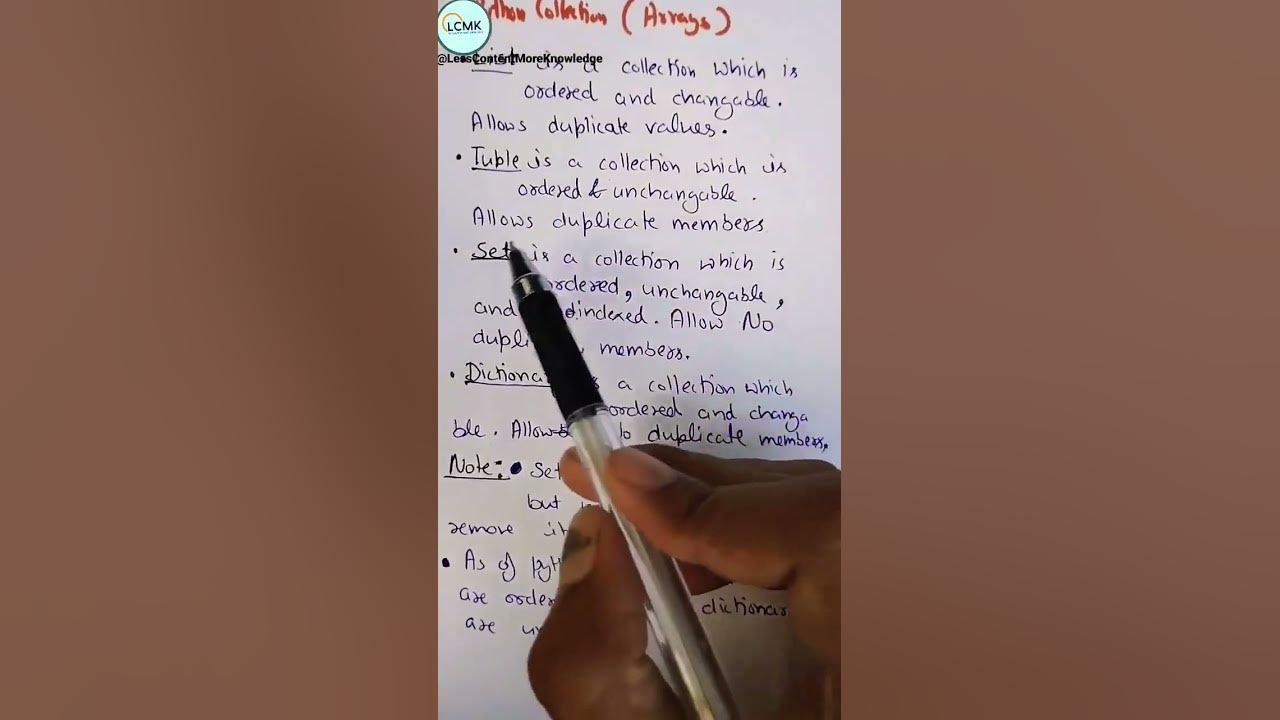 LCMK
Collection (Arrays)
@LessContentMoreKnowledge
List is a collection which is
ordered and changable.
Allows duplicate values.
• Tuble is a collection which is
ordered & unchangable.
Allows duplicate members
• Set is a collection which is
ordered, unchangable,
and indexed. Allow No
members.
• a collection which
ordered and changa
ble. Allows duplicate members,
Note: • Set
but
remove it
• As of
are
are